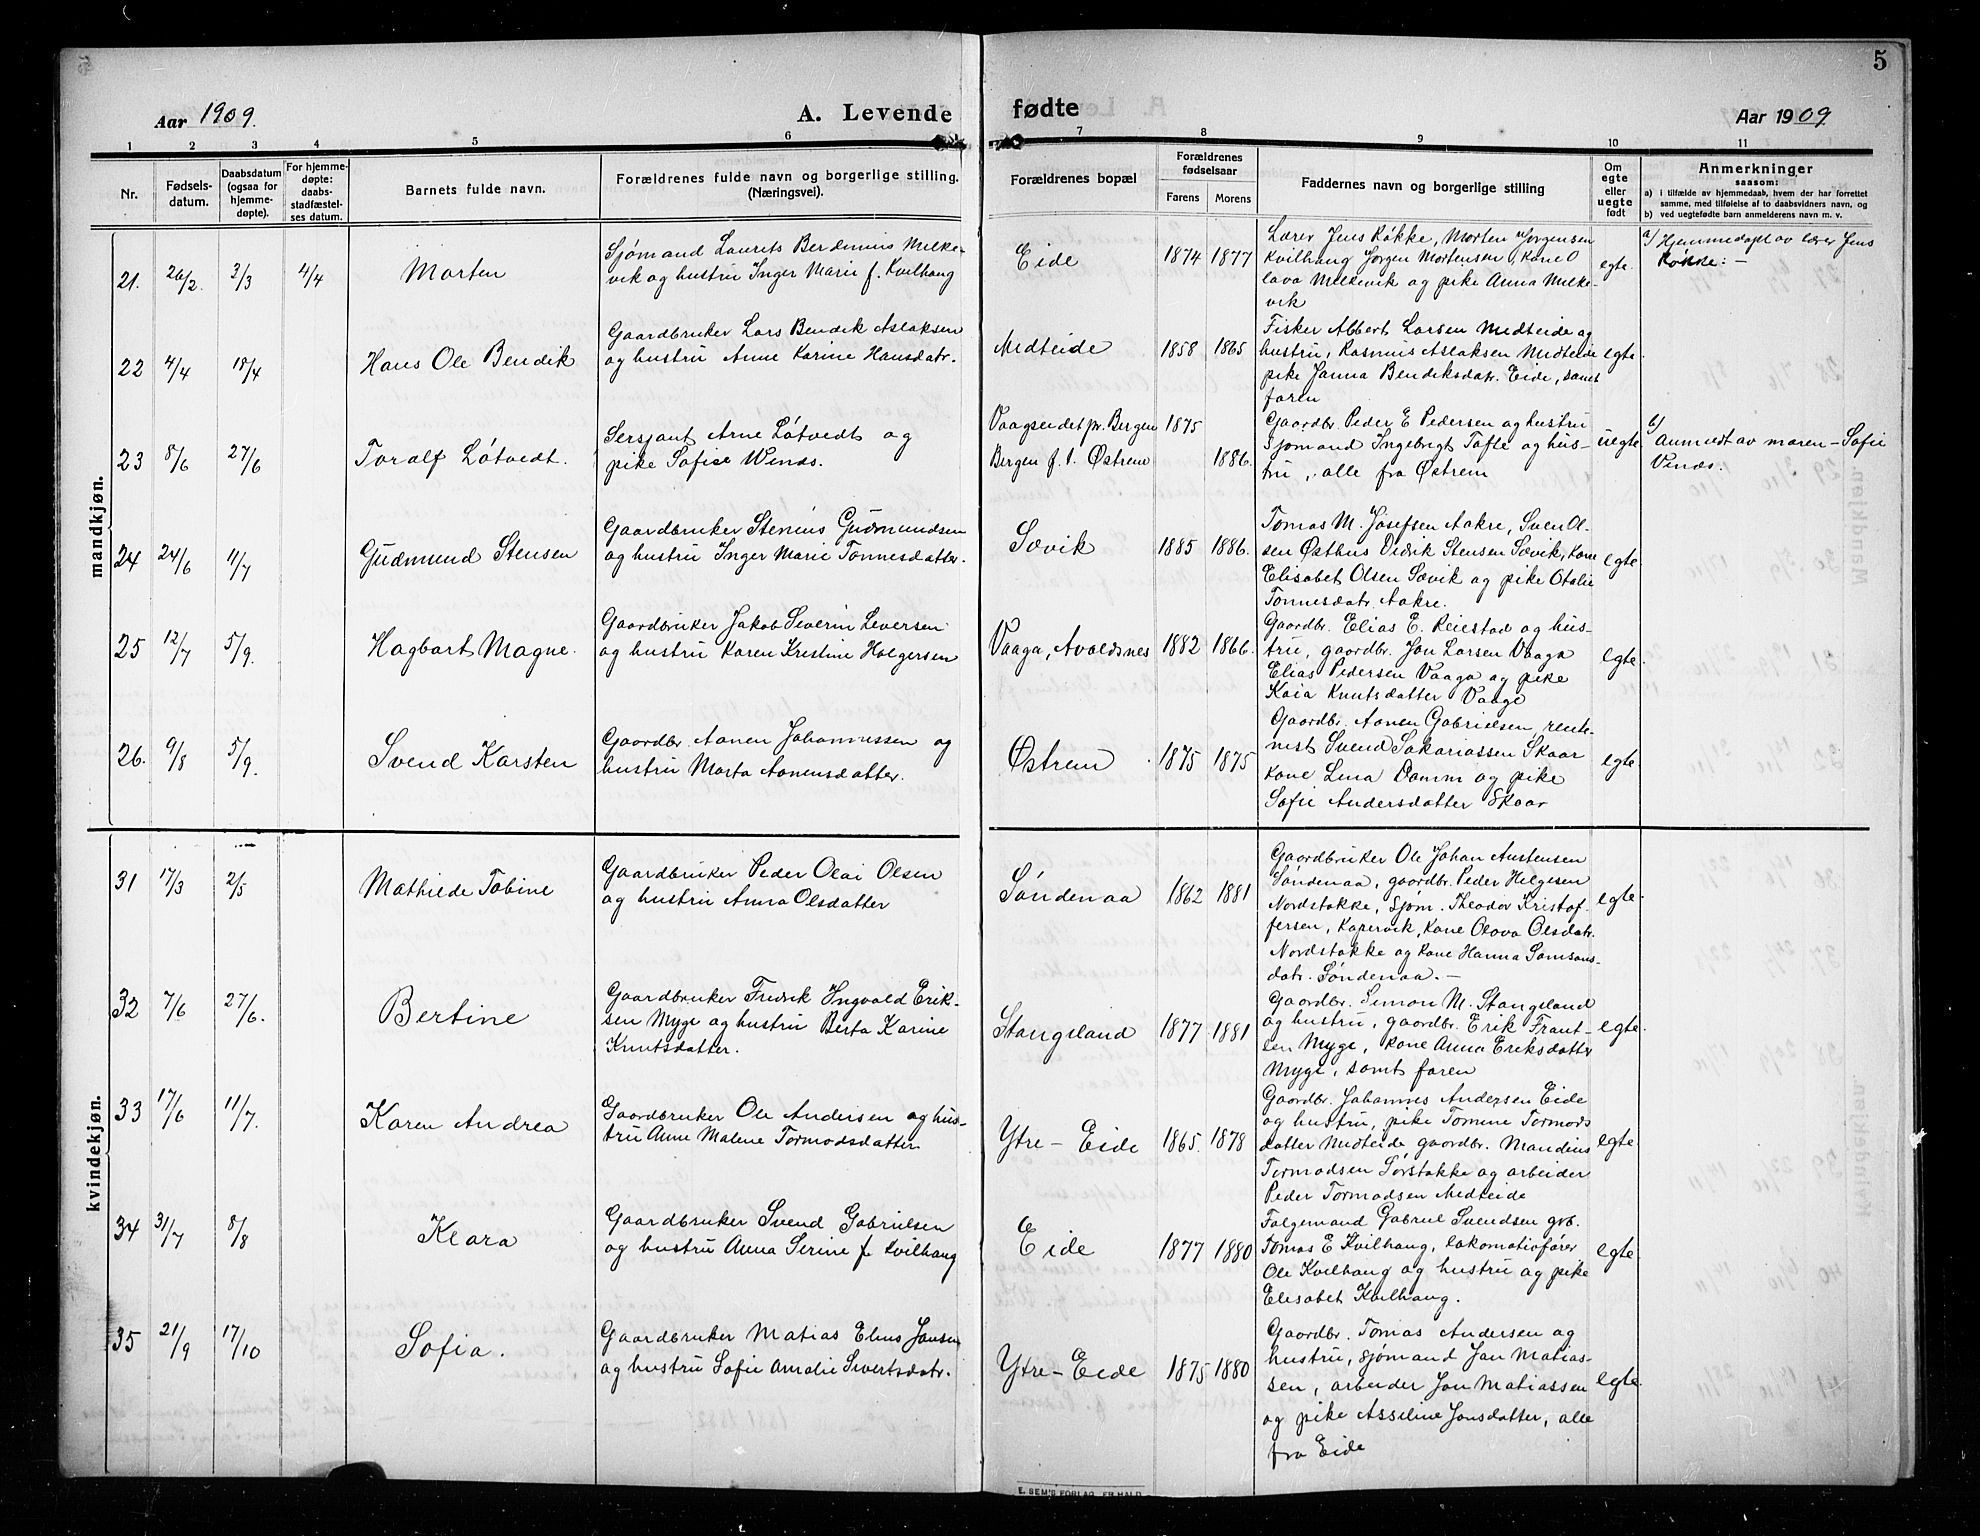 5
Aar 1909.
A. Levende fødte
Aar 1909
1 2 3 4 5 6 7 8 9 10 11
Nr.
Fødselsdatum.
Daabsdatum (ogsaa for hjemmedøpte).
For hjemmedøpte: daabsstadfæstelses datum.
Barnets fulde navn.
Forældrenes fulde navn og borgerlige stilling. (Næringsvei).
Forældrenes bopæl
Forældrenes fødselsaar
Farens Morens
Faddernes navn og borgerlige stilling
Om egte eller uegte født
Anmerkninger
saasom:
a) i tilfælde av hjemmedaab, hvem der har forrettet samme, med tilføielse af to daabsvidners navn, og
b) ved uegtefødte barn anmelderens navn m. v.
mandkjøn.
21. 26/2. 3/3 4/4 Morten
Sjømand Laurits Berdinius Melke-
vik og hustru Inger Marie f. Kvilhaug
Eide 1874 1877
Lærer Jens Røkke, Morten Jørgensen
Kvilhaug Jørgen Mortensen, Kone O
lava Melkevik og pike Anna Melke-
vik
egte.
a/ Hjemmedøpt av lærer Jens
Røkke: -
22 4/4 18/4 Hans Ole Bendik
Gaardbruker Lars Bendik Aslaksen
og hustru Anne Karine Hansdatr.
Medteide 1858 1865
Fisker Albert Larsen Medteide og
hustru, Rasmus Aslaksen Medteide
pike Janna Bendiksdatr. Eide, samt
faren
egte
23 8/6 27/6 Toralf Løtvedt.
Sersjant Arne Løtvedt og
pike Sofie Winds.
Vaagseidet pr. Bergen 1875
Bergen f. t. Østrem 1886.
Gaardbr. Peder E Pedersen og hustru
Sjømand Ingebrigt Tofte og hus-
tru, alle fra Østrem
uegte
b/
Anmeldt av moren - Sofie
Vinds.
24 24/6 11/7 Gudmund Stensen
Gaardbruker Stenius Gudmundsen
og hustru Inger Marie Tonnesdatter.
Sævik 1885 1886.
Tomas M. Josefsen Aakre, Sven Ol-
sen Østhus Didrik Stensen Sævik, Kone
Elisabet Olsen Sævik og pike Otalie
Tonnesdatr. Aakre.
egte.
25 12/7 5/9. Hagbart Magne.
Gaardbruker Jakob Severin Seversen
og hustru Karen Kristine Holgersen
Vaaga, Avaldsnes 1882 1866.
Gaardbr. Elias E. Reiestad og hus-
tru, gaardbr. Jon Larsen Vaaga
Elias Pedersen Vaaga og pike
Kaia Knutsdatter Vaage
egte.
26. 9/8 5/9. Svend Karsten
Gaardbr. Aanen Johannessen og
hustru Marta Aanensdatter.
Østrem 1875 1875
Gaardbr. Aanen Gabrielsen, rente-
nist Svend Sakariassen Skaar
Kone Lina Damm og pike
Sofie Andersdatter Skaar
egte.
kvindekjøn.
31 17/3 2/5 Mathilde Tobine
Gaardbruker Peder Olai Olsen
og hustru Anna Olsdatter
Søndenaa 1862 1881
Gaardbruker Ole Johan Austensen
Søndenaa, gaardbr. Peder Helgesen
Nordstokke, Sjøm. Theodor Kristof-
fersen, Kopervik, Kone Olava Olsdatr.
Nordstokke og Kone Hanna Samsons-
datr. Søndenaa. -
egte.
32 7/6 27/6. Bertine
Gaardbruker Fredrik Ingvald Erik-
sen Myge og hustru Berta Karine
Knutsdatter.
Stangeland 1877 1881
Gaardbr. Simon M. Stangeland
og hustru, gaardbr. Erik Frant-
sen Myge, Kone Anna Eriksdatter
Myge, samt faren
egte.
33 17/6 11/7. Karen Andrea
Gaardbruker Ole Andersen og hus-
tru Anne Malene Tormodsdatter
Ytre - Eide 1865. 1878
Gaardbr. Johannes Andersen Eide
og hustru, pike Tomine Tormods
datter Medteide gaardbr. Mandius
Tormodsen Sørstokke og arbeider
Peder Tormodsen Medteide
egte.
34 31/7 8/8 Klara
Gaardbruker Svend Gabrielsen
og hustru Anna Serine f Kvilhaug
Eide 1877 1880
Folgemand Gabriel Svendsen grb.
Tomas E Kvilhaug, lokomotivfører
Ole Kvilhaug og hustru og pike
Elisabet Kvilhaug.
egte.
35 21/9 17/10 Sofia.
Gaardbruker Matias Elius Jonsen
og hustru Sofie Amalie Sivertsdatr.
Ytre - Eide 1875 1880
Gaardbr. Tomas Andersen og
hustru, sjømand Jan Matias-
sen, arbeider Jon Matiassen
og pike Asseline Jonsdatter, alle
fra Eide
egte.
E. SEM'S FORLAG, FR.HALD